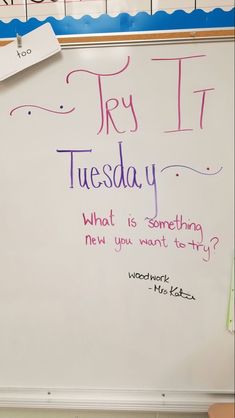 too
~ Try It
Tuesday ~
What is something
new you want to try?
woodwork
- Mrs Katie